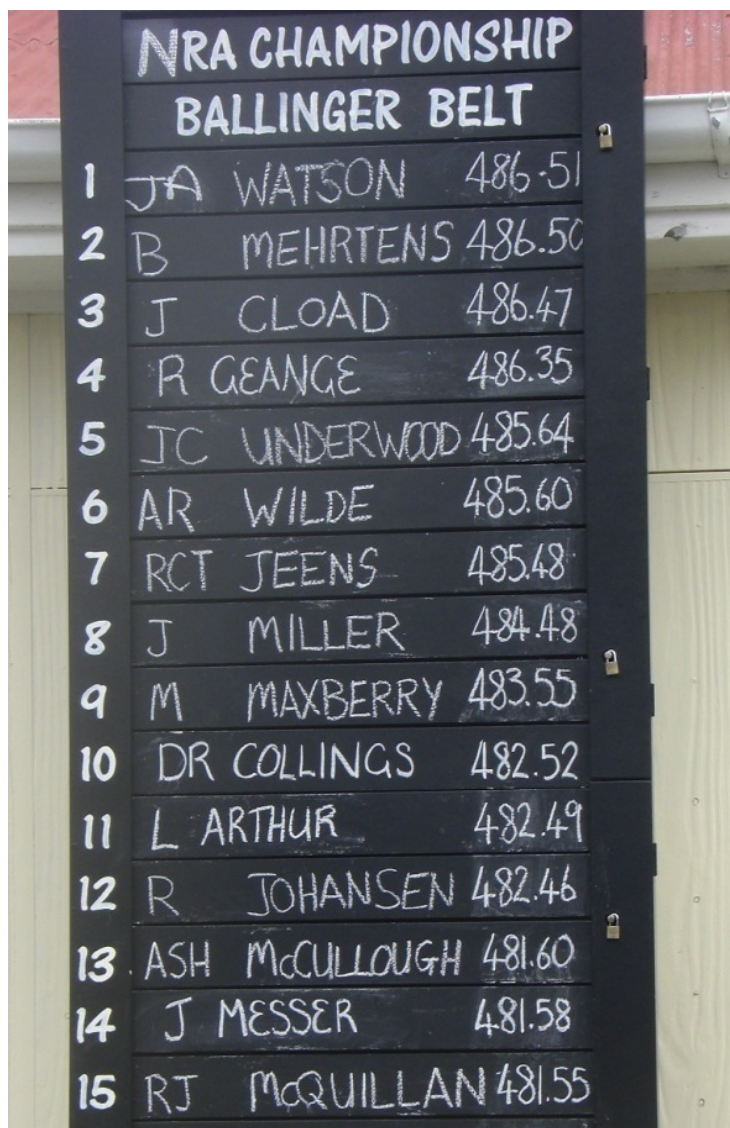 NRA CHAMPIONSHIP
BALLINGER BELT
1 JA WATSON 486.51
2 B MEHRTENS 486.50
3 J CLOAD 486.47
4 R GEANGE 486.35
5 JC UNDERWOOD 485.64
6 AR WILDE 485.60
7 RCT JEENS 485.48
8 J MILLER 484.48
9 M MAXBERRY 483.55
10 DR COLLINGS 482.52
11 L ARTHUR 482.49
12 R JOHANSEN 482.46
13 ASH McCULLOUGH 481.60
14 J MESSER 481.58
15 RJ McQUILLAN 481.55